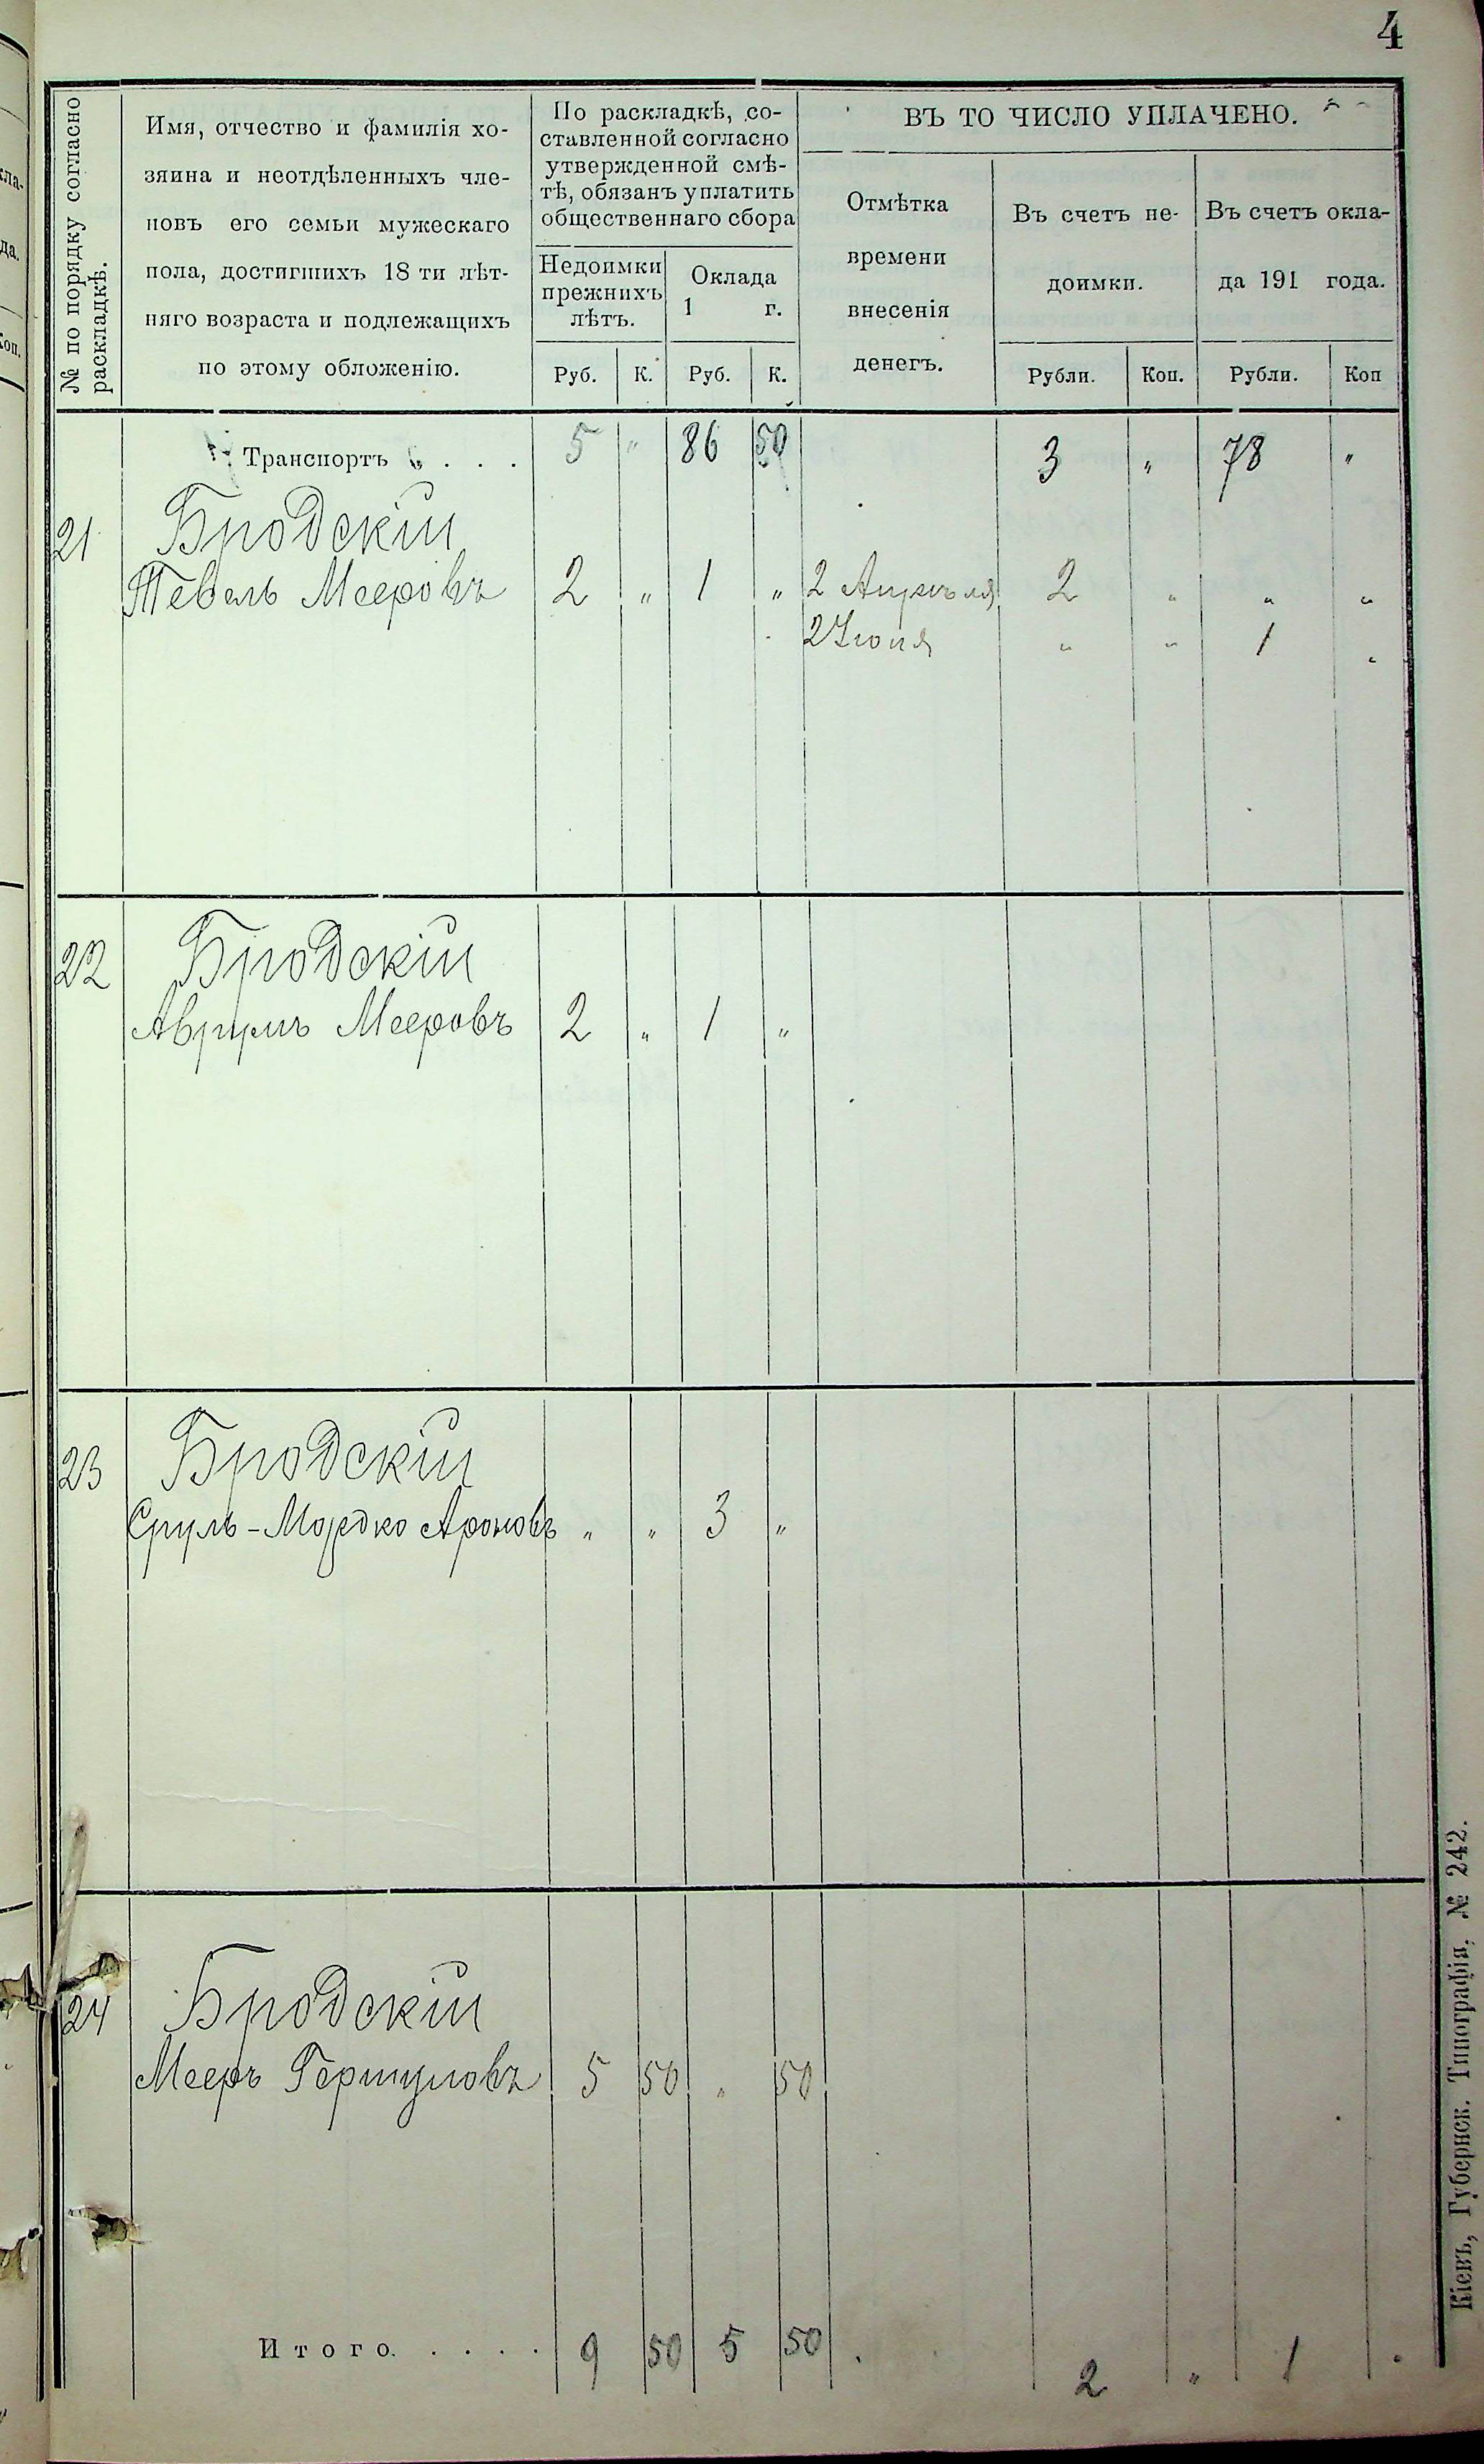 4
№ по порядку согласно
раскладкѣ.
Имя, отчество и фамилія хо-
зяина и неотдѣленныхъ чле-
новъ его семьи мужескаго
пола, достигшихъ 18 ти лѣт-
няго возраста и подлежащихъ
по этому обложенію.
По раскладкѣ, со-
ставленной согласно
утвержденной смѣ-
тѣ, обязанъ уплатить
общественнаго сбора
Недоимки
прежнихъ
лѣтъ.
Оклада
1 г.
ВЪ ТО ЧИСЛО УПЛАЧЕНО.
Отмѣтка
времени
внесенія
денегъ.
Въ счетъ не-
доимки.
Въ счетъ окла-
да 191 года.
Руб. К. Руб. К. Рубли. Коп. Рубли. Коп
Транспортъ . . . 5 " 86 50 3 " 78 "
21 Бродскій
Тевель Мееровъ 2 " 1 " 2 Апрѣля 2 " " "
2 Іюня " " 1 "
22 Бродскій
Аврумъ Мееровъ 2 " 1 "
23 Бродскій
Сруль-Мордко Ароновъ " " 3 "
24 Бродскій
Мееръ Гершуновъ 5 50 " 50
Итого. . . . . 9 50 5 50 2 " 1
Кіевъ, Губернск. Типографія, № 242.